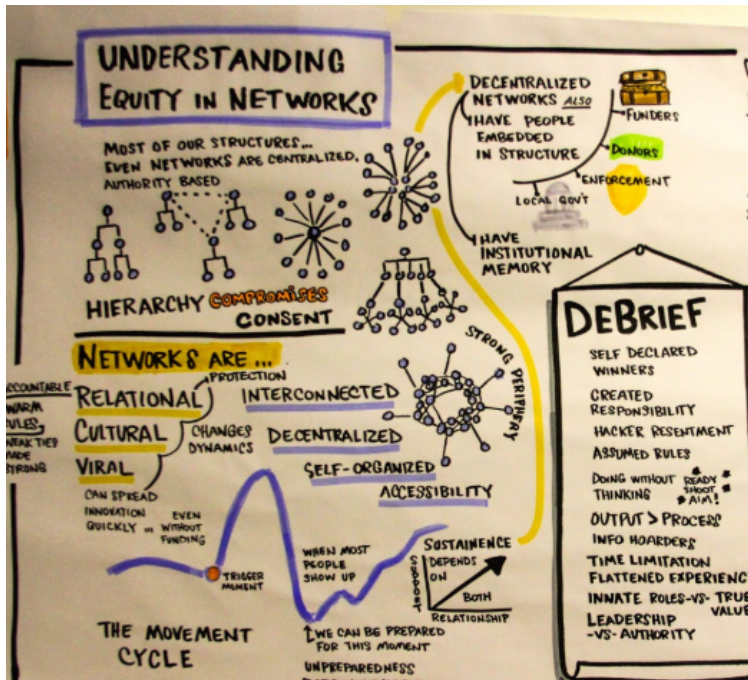 UNDERSTANDING
EQUITY IN NETWORKS
MOST OF OUR STRUCTURES...
EVEN NETWORKS ARE CENTRALIZED,
AUTHORITY BASED
HIERARCHY COMPROMISES
CONSENT
DECENTRALIZED
NETWORKS ALSO
HAVE PEOPLE
EMBEDDED
IN STRUCTURE
FUNDERS
DONORS
ENFORCEMENT
LOCAL GOV'T
HAVE
INSTITUTIONAL
MEMORY
NETWORKS ARE...
PROTECTION
RELATIONAL
CULTURAL
VIRAL
CHANGES
DYNAMICS
CAN SPREAD
INNOVATION
QUICKLY ... EVEN
WITHOUT
FUNDING
WEAK TIES
MADE
STRONG
INTERCONNECTED
DECENTRALIZED
SELF-ORGANIZED
ACCESSIBILITY
STRONG PERIPHERY
TRIGGER
MOMENT
WHEN MOST
PEOPLE
SHOW UP
WE CAN BE PREPARED
FOR THIS MOMENT
UNPREPAREDNESS
THE MOVEMENT
CYCLE
SUSTAINENCE
DEPENDS
ON
BOTH
SUPPORT
RELATIONSHIP
DEBRIEF
SELF DECLARED
WINNERS
CREATED
RESPONSIBILITY
HACKER RESENTMENT
ASSUMED RULES
DOING WITHOUT
THINKING
READY
SHOOT
AIM!
OUTPUT > PROCESS
INFO HOARDERS
TIME LIMITATION
FLATTENED EXPERIENC
INNATE ROLES -VS- TRUE
VALUE
LEADERSHIP
-VS- AUTHORITY